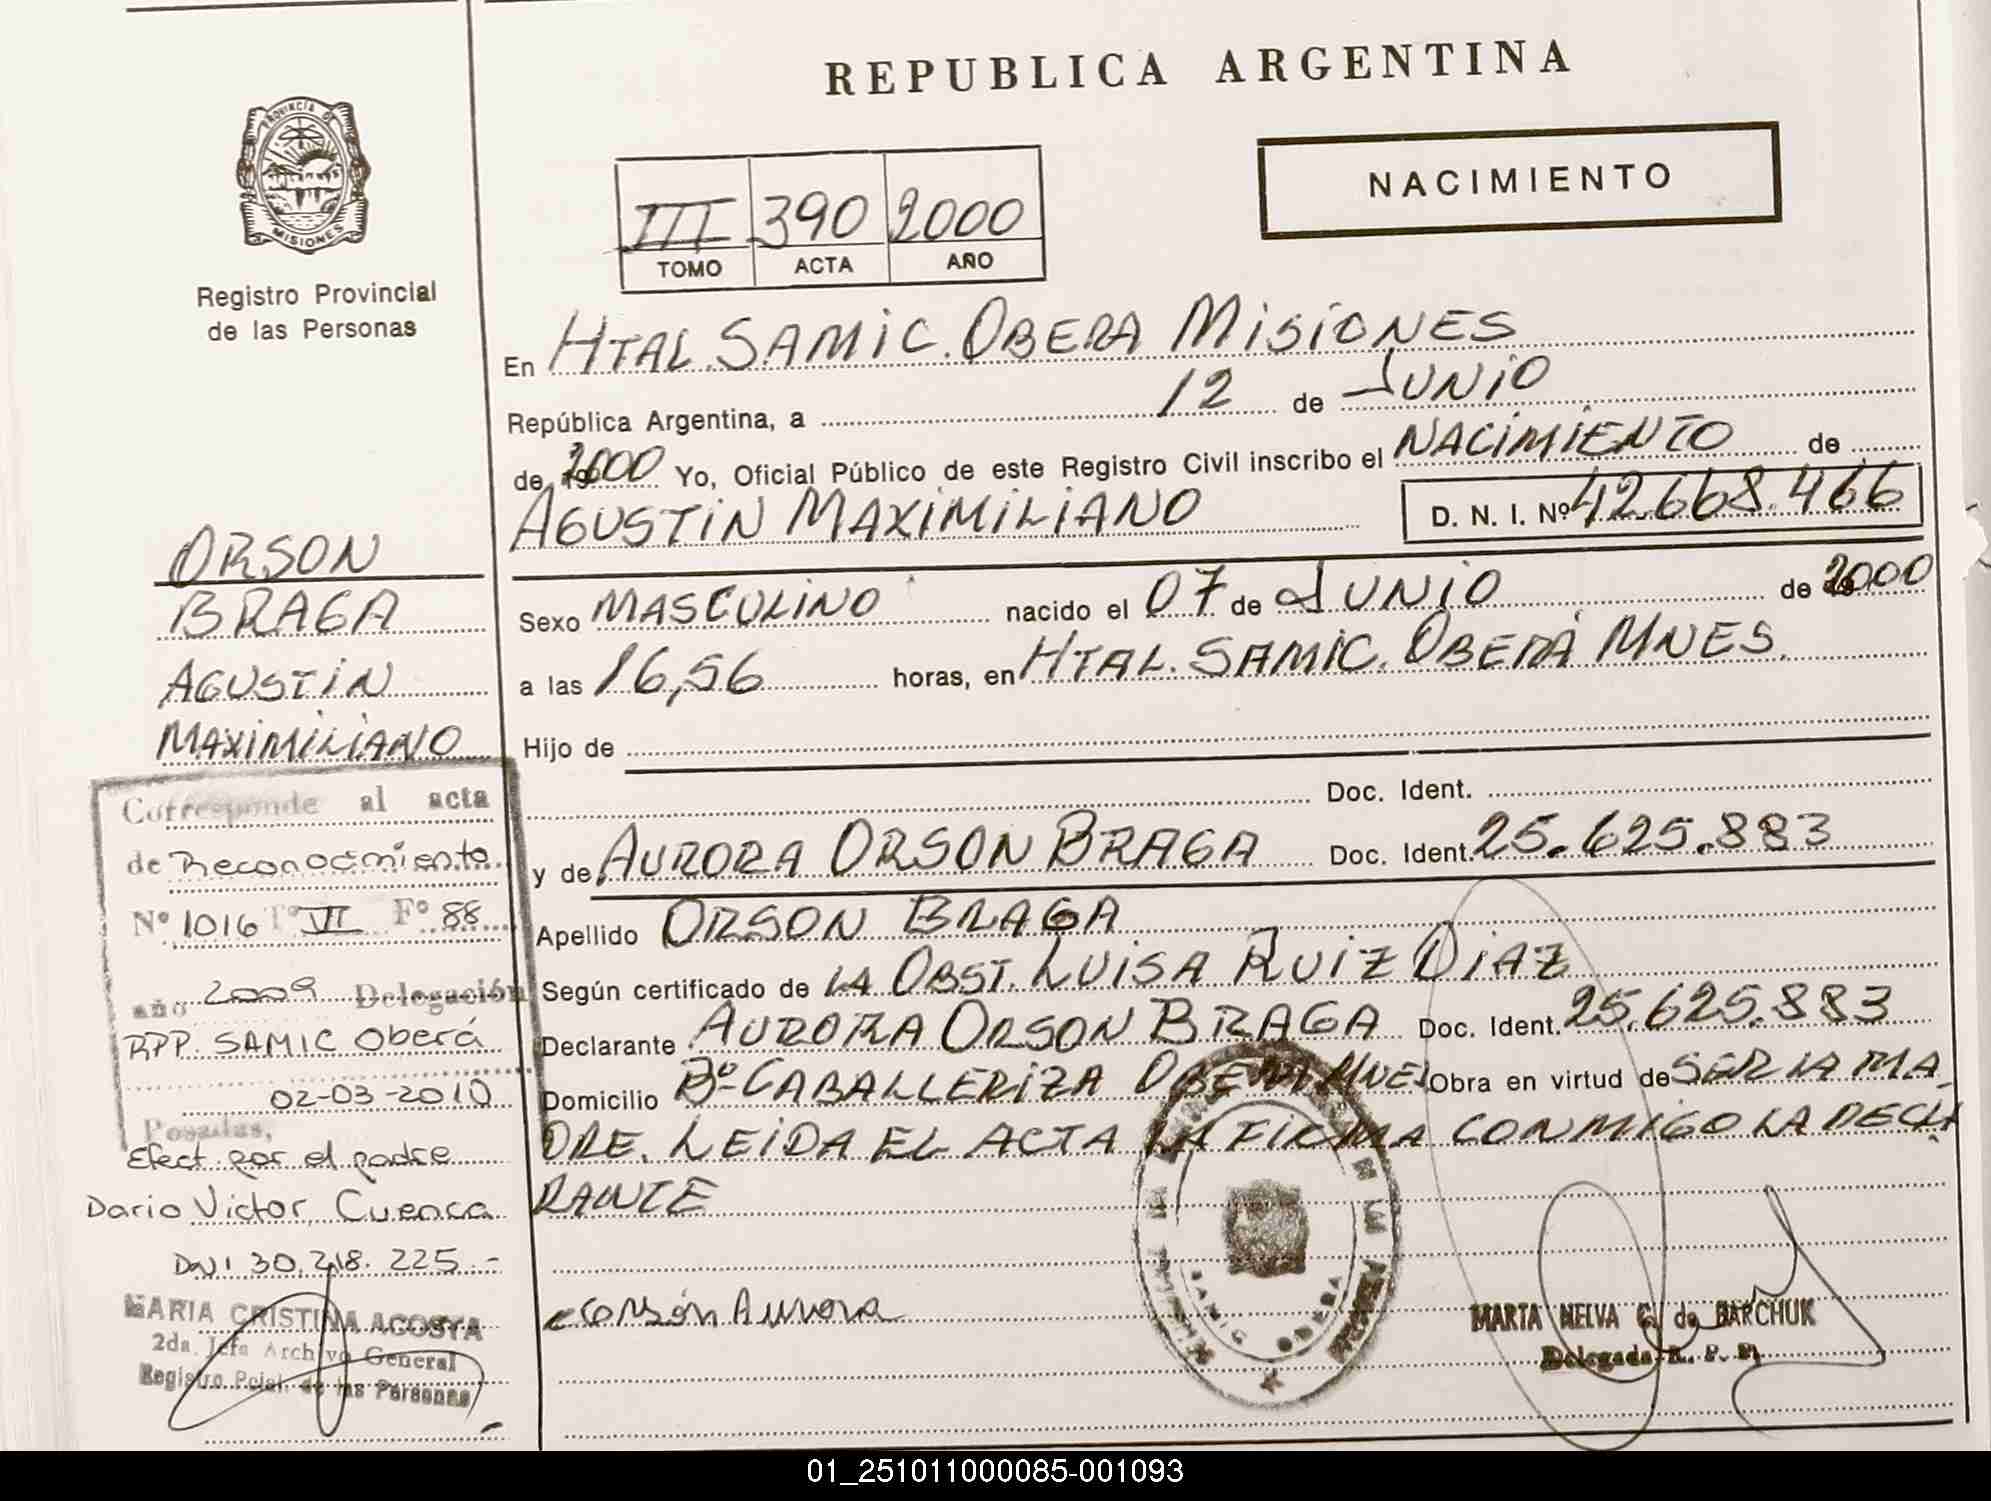 REPUBLICA ARGENTINA
PROVINCIA DE
MISIONES
Registro Provincial
de las Personas
NACIMIENTO
III 390 2000
TOMO ACTA AÑO
En HTAL. SAMIC. OBERA MISIONES
República Argentina, a 12 de JUNIO
de 2000 Yo, Oficial Público de este Registro Civil inscribo el NACIMIENTO de
AGUSTIN MAXIMILIANO D. N. I. Nº 42.668.466
Sexo MASCULINO nacido el 07 de JUNIO de 2000
a las 16,56 horas, en HTAL. SAMIC. OBERÁ MNES.
Hijo de
Doc. Ident.
y de AURORA ORSON BRAGA Doc. Ident. 25.625.883
Apellido ORSON BRAGA
Según certificado de LA OBST. LUISA RUIZ DIAZ
Declarante AURORA ORSON BRAGA Doc. Ident. 25.625.883
Domicilio Bº CABALLERIZA OBERA MNES Obra en virtud de SER LA MA
DRE. LEIDA EL ACTA LA FIRMA CONMIGO LA DECLA
RANTE
Orsón Aurora
MARTA NELVA G. de BARCHUK
Delegada R. P. P.
SAMIC OBERA
ORSON
BRAGA
AGUSTIN
MAXIMILIANO
Corresponde al acta
de Reconocimiento
Nº 1016 Tº VI Fº 88
año 2009 Delegación
RPP. SAMIC Oberá
02-03-2010
Posadas,
Efect por el padre
Dario Victor Cuenca
DNI 30.218.225.-
MARIA CRISTINA ACOSTA
2da. Jefa Archivo General
Registro Pcial. de las Personas
01_251011000085-001093